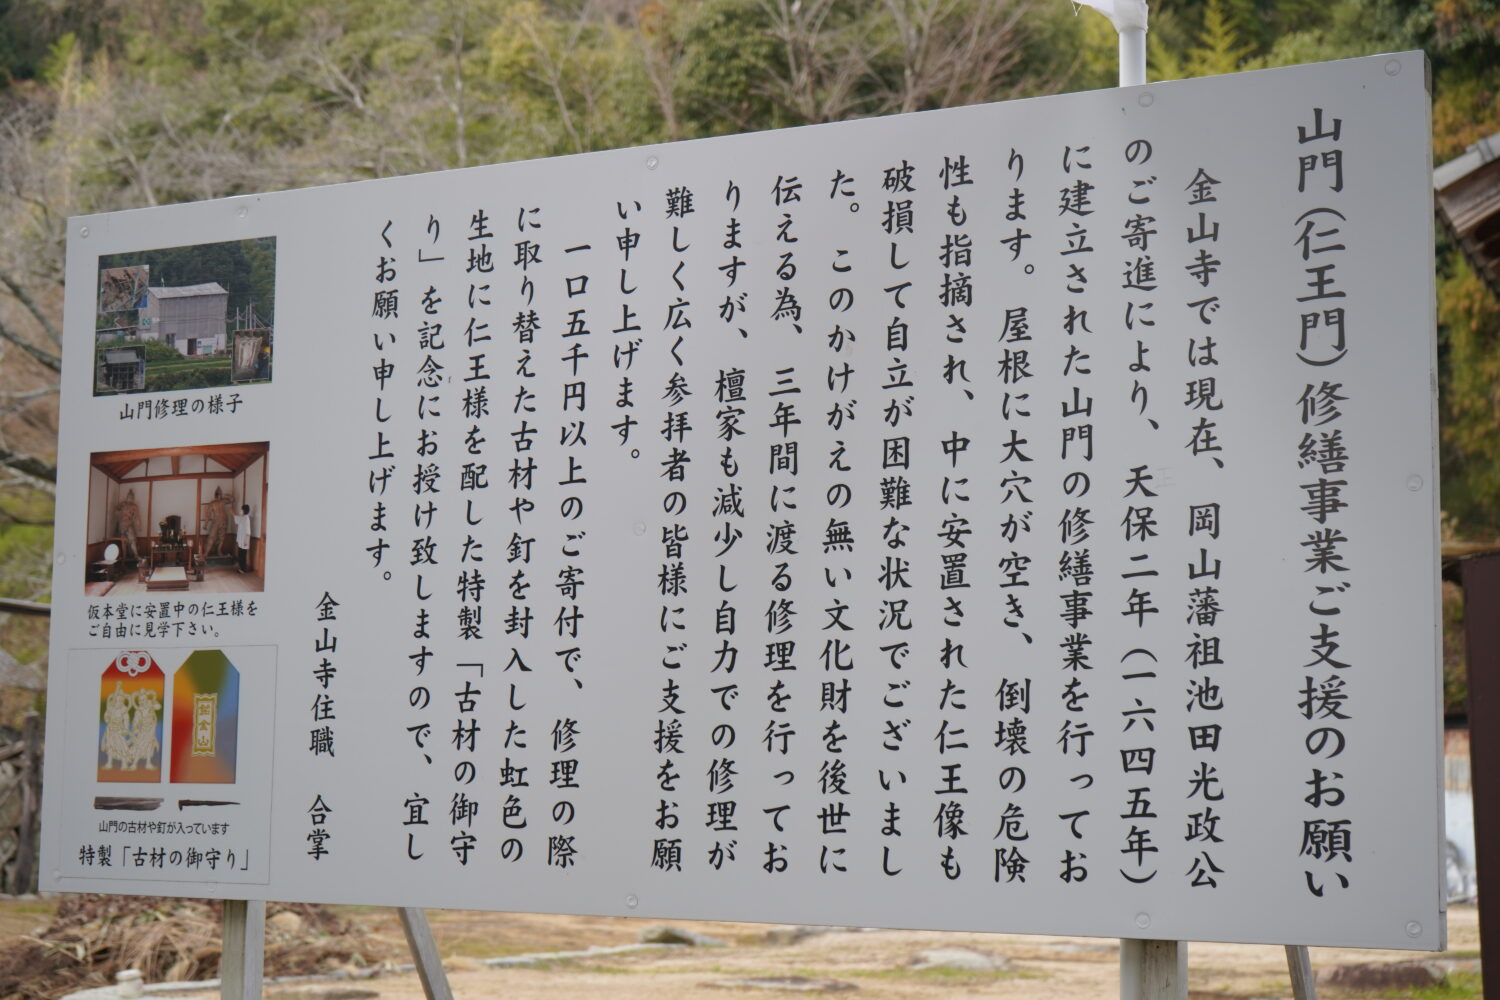 山門（仁王門）修繕事業ご支援のお願い
金山寺では現在、岡山藩祖池田光政公
のご寄進により、天保二年（一六四五年）
に建立された山門の修繕事業を行ってお
ります。屋根に大穴が空き、倒壊の危険
性も指摘され、中に安置された仁王像も
破損して自立が困難な状況でございまし
た。このかけがえの無い文化財を後世に
伝える為、三年間に渡る修理を行ってお
りますが、檀家も減少し自力での修理が
難しく広く参拝者の皆様にご支援をお願
い申し上げます。
一口五千円以上のご寄付で、修理の際
に取り替えた古材や釘を封入した虹色の
生地に仁王様を配した特製「古材の御守
り」を記念にお授け致しますので、宜し
くお願い申し上げます。
金山寺住職 合掌
山門修理の様子
仮本堂に安置中の仁王様を
ご自由に見学下さい。
金山
山門の古材や釘が入っています
特製「古材の御守り」